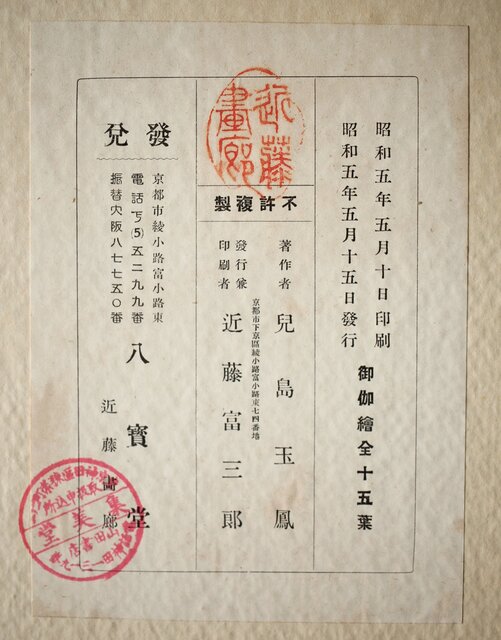 昭和五年五月十日印刷
昭和五年五月十五日發行
御伽繪全十五葉
近藤
畫廊
不許複製
著作者 兒島玉鳳
京都市下京區綾小路富小路東七四番地
發行兼
印刷者 近藤富三郎
發兌
京都市綾小路富小路東
電話下(5)五二九九番
振替大阪八七七五〇番
八寶堂
近藤畫廊
集美堂
山田書店